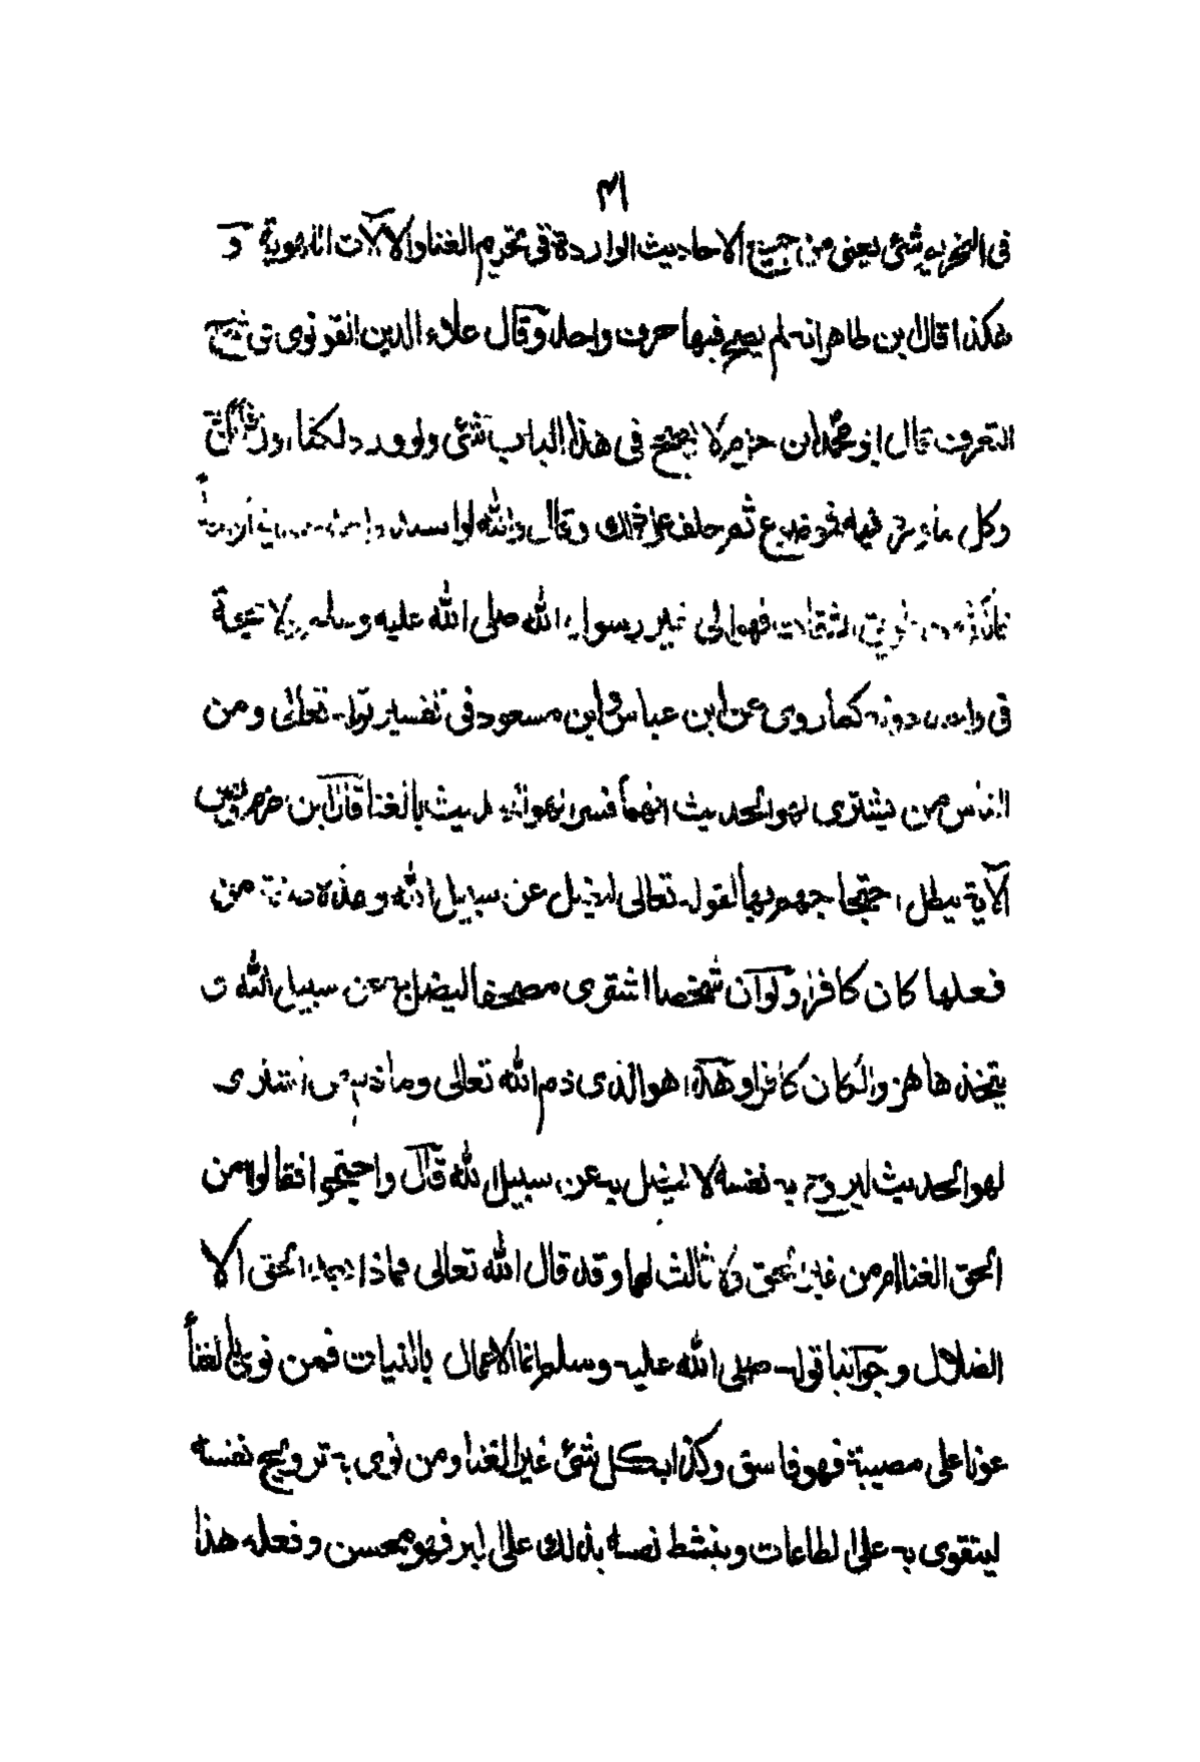 ٣١
فى التحريم شئ يعنى من جميع الاحاديث الواردة فى تحريم الغنا والالآت اللهوية و
هكذا قال بن طاهر انه لم يصح فيها حرف واحد وقال علاء الدين القونوى فى شرح
التعرف قال ابو محمد ابن حزم لا يصح فى هذا الباب شئ ولو ورد لكنا اول قائل
وكل ما ورد فيه فموضوع ثم حلف على ذلك وقال والله لو اسند
من طريق الثقات فهو الى غير رسول الله صلى الله عليه وسلم ولا حجة
فى احد دونه كما روى عن ابن عباس وابن مسعود فى تفسير قوله تعالى ومن
الناس من يشترى لهو الحديث انهما فسرا لهو الحديث بالغنا قال ابن حزم ونص
الآية يبطل احتجاجهم بها لقوله تعالى ليضل عن سبيل الله وهذه صفة من
فعلها كان كافرا ولو ان شخصا اشترى مصحفا ليضل به عن سبيل الله
يتخذها هزوا لكان كافرا وهذا هو الذى ذم الله تعالى وما ذم من اشترى
لهو الحديث ليروح به نفسه لا ليضل به عن سبيل الله قال واحتجوا فقالوا من
الحق الغنا ام من غير الحق ولا ثالث لهما وقد قال الله تعالى فماذا بعد الحق الا
الضلال وجوابنا قوله صلى الله عليه وسلم انما الاعمال بالنيات فمن نوى بالغنأ
عونا على معصية فهو فاسق وكذا بكل شئ غير الغنا ومن نوى به ترويح نفسه
ليتقوى به على الطاعات وينشط نفسه بذلك على البر فهو محسن وفعله هذا